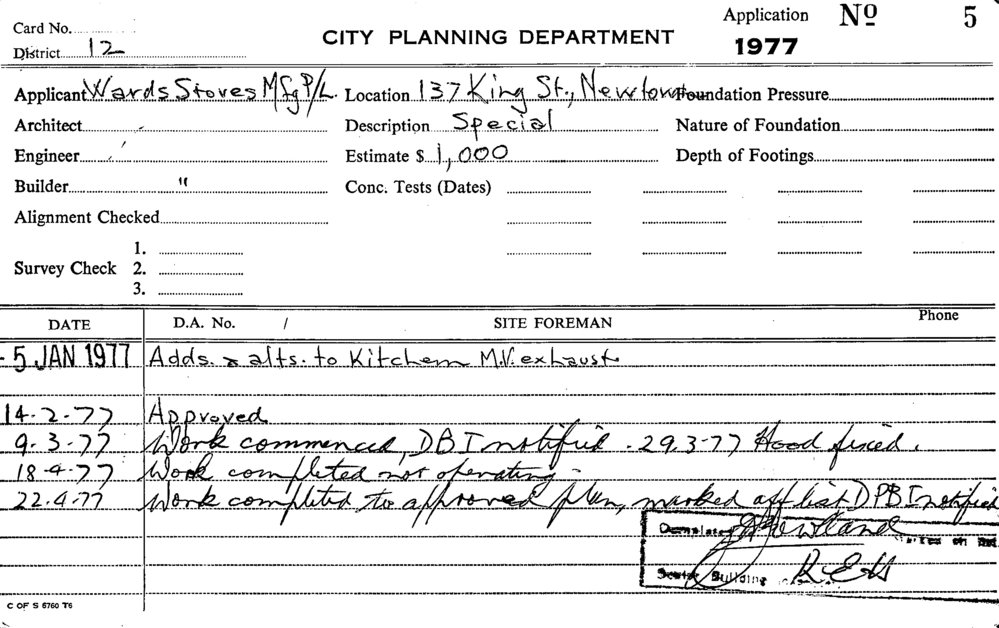 Card No.
District 12
CITY PLANNING DEPARTMENT
Application Nº 5
1977
Applicant Wards Stoves Mfg P/L. Location 137 King St., Newtown Foundation Pressure
Architect " Description Special Nature of Foundation
Engineer " Estimate $ 1,000 Depth of Footings
Builder " Conc. Tests (Dates)
Alignment Checked
Survey Check 1.
2.
3.
DATE D.A. No. / SITE FOREMAN Phone
- 5 JAN 1977 Adds. & alts. to Kitchen M.V. exhaust
14-2-77 Approved
9.3.77 Work commenced, DBI notified. 29.3-77 Hood fixed.
18-4-77 Work completed not operating -
22.4.77 Work completed to approved plan, marked off list DPBI notified
Completed
Senior Building
C OF S 6760 T6